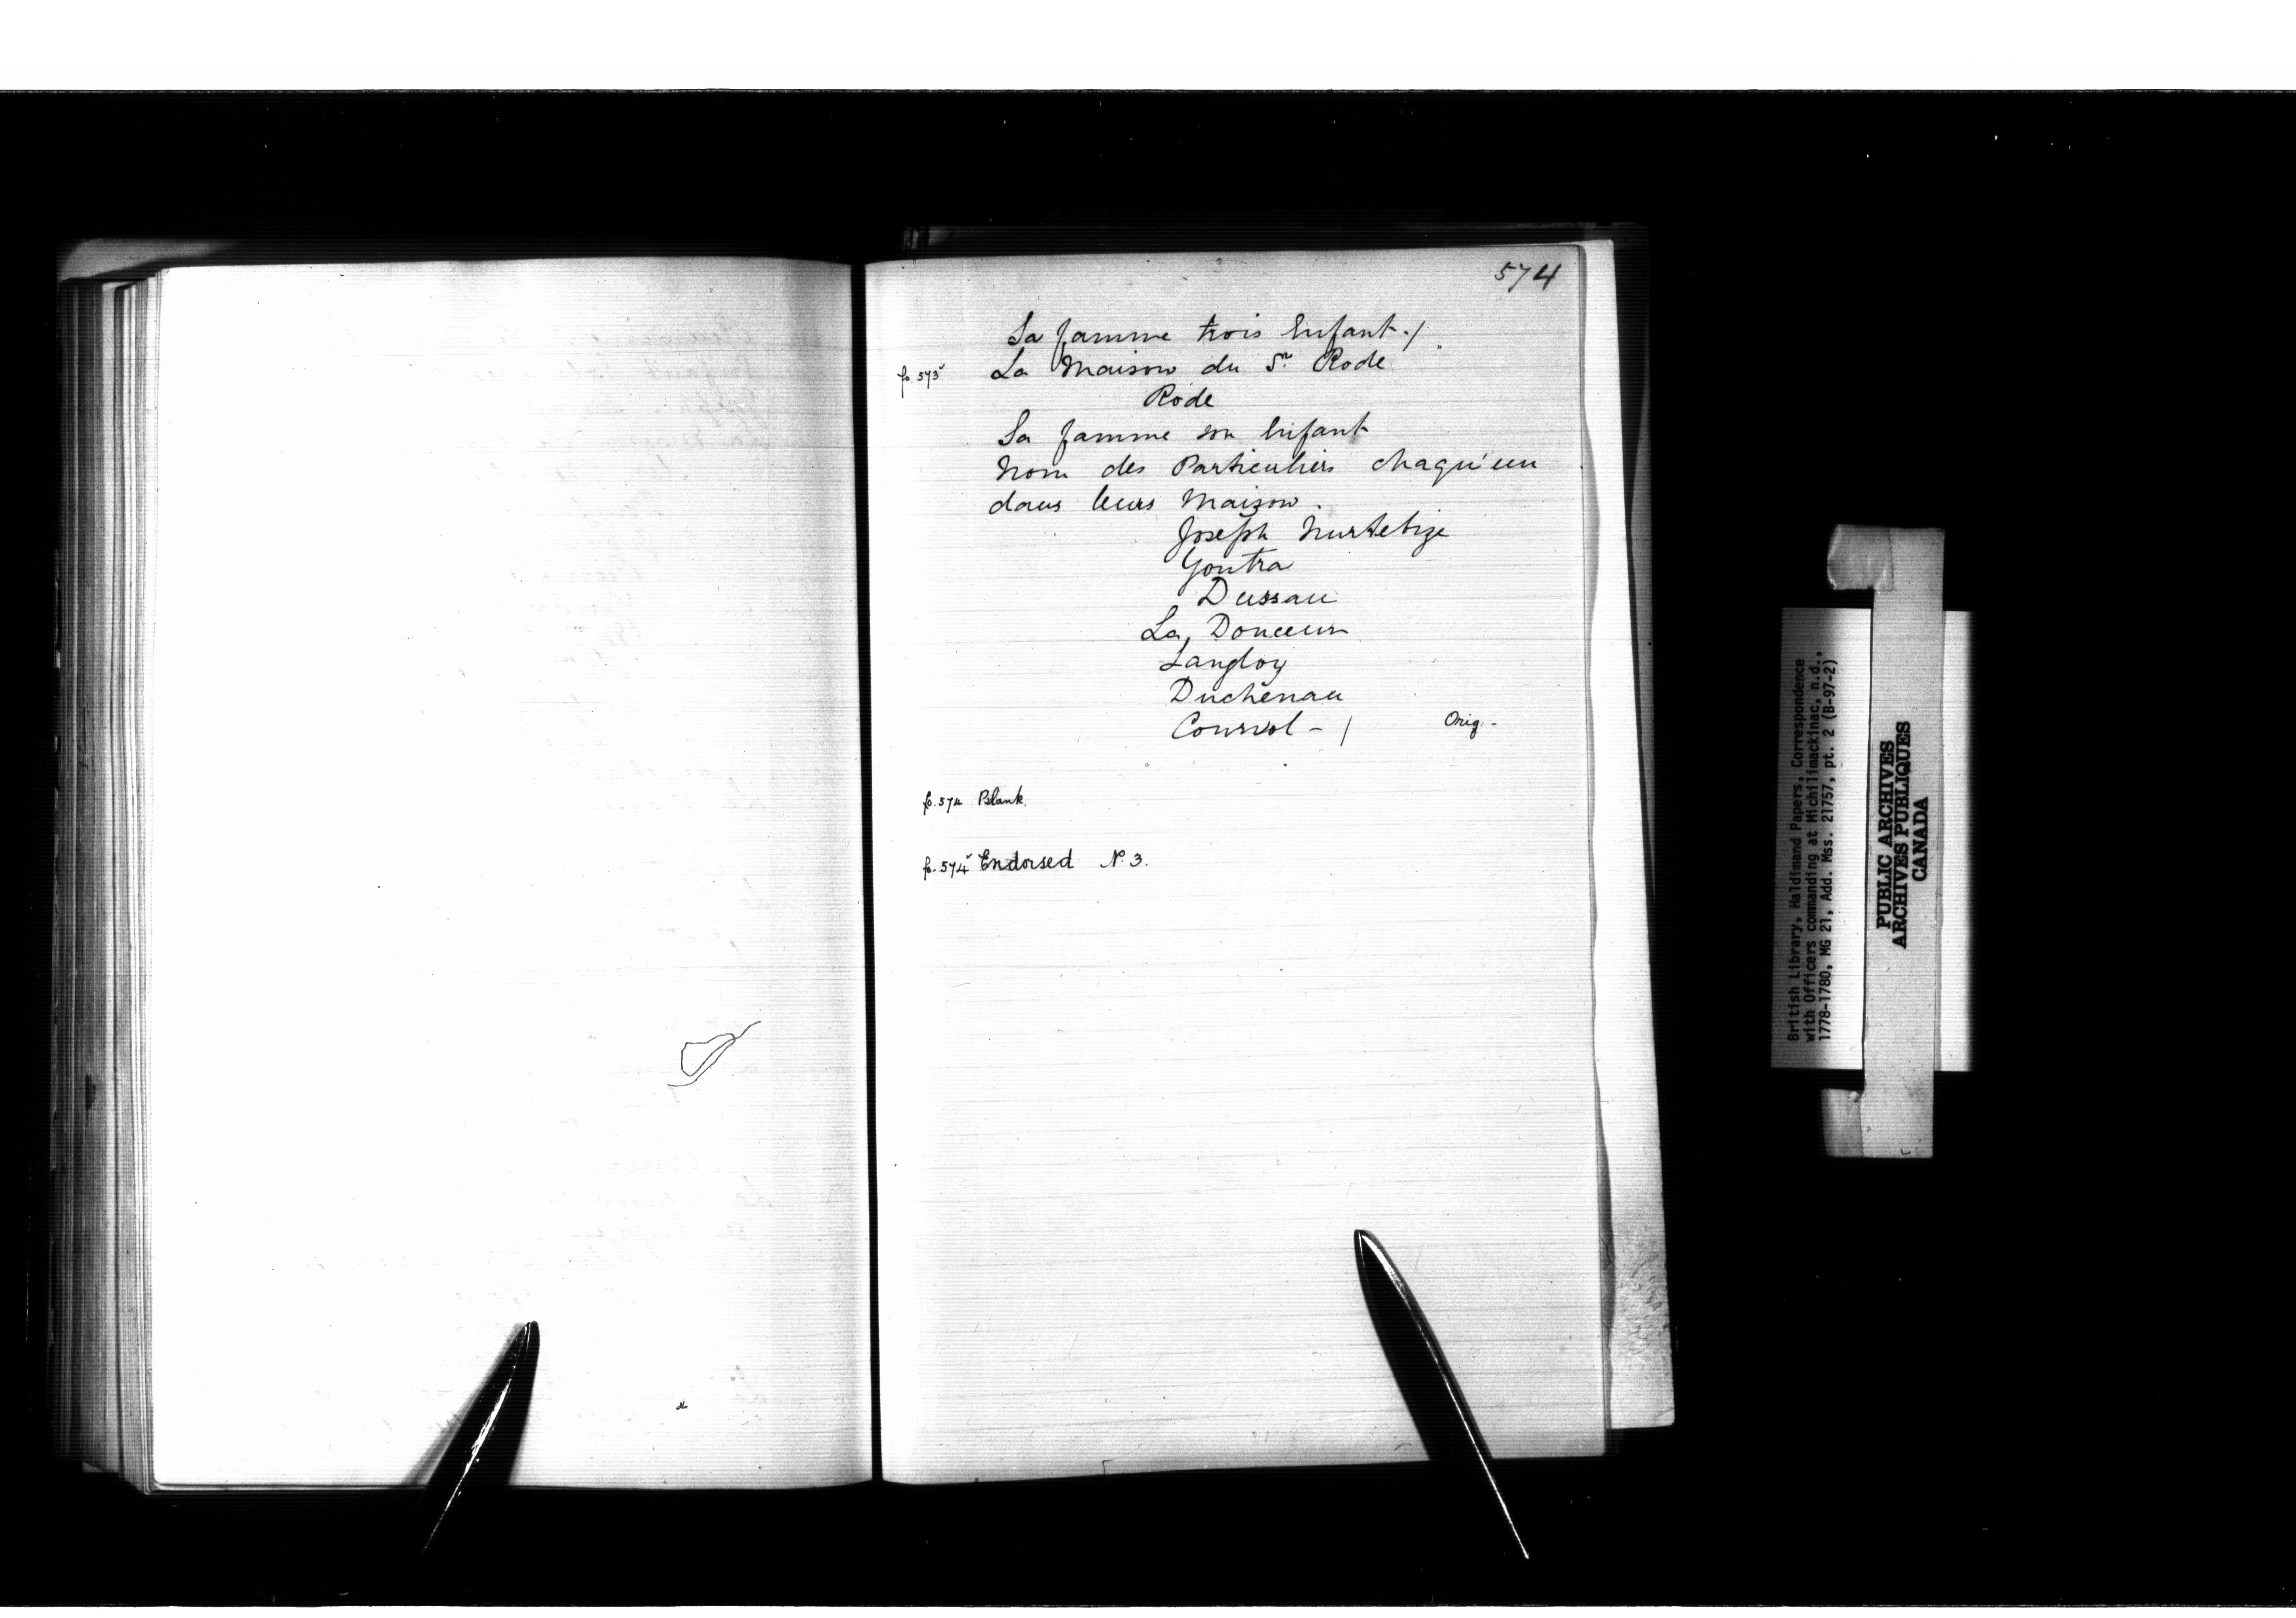 574
Sa famme trois Enfant./
fo. 573v La Maison du Sr. Rode
Rode
Sa famme son Enfant
Nom des Particuliers chaqu'eun
dans leurs Maison.
Joseph Hurtebize
Goutra
Dussau
La Douceur
Langloy
Duchenau
Coursol - /
Orig. -
fo. 574 Blank.
fo. 574v Endorsed No. 3.
British Library, Haldimand Papers, Correspondence
with Officers commanding at Michilimackinac, n.d.,
1778-1780, MG 21, Add. Mss. 21757, pt. 2 (B-97-2)
PUBLIC ARCHIVES
ARCHIVES PUBLIQUES
CANADA